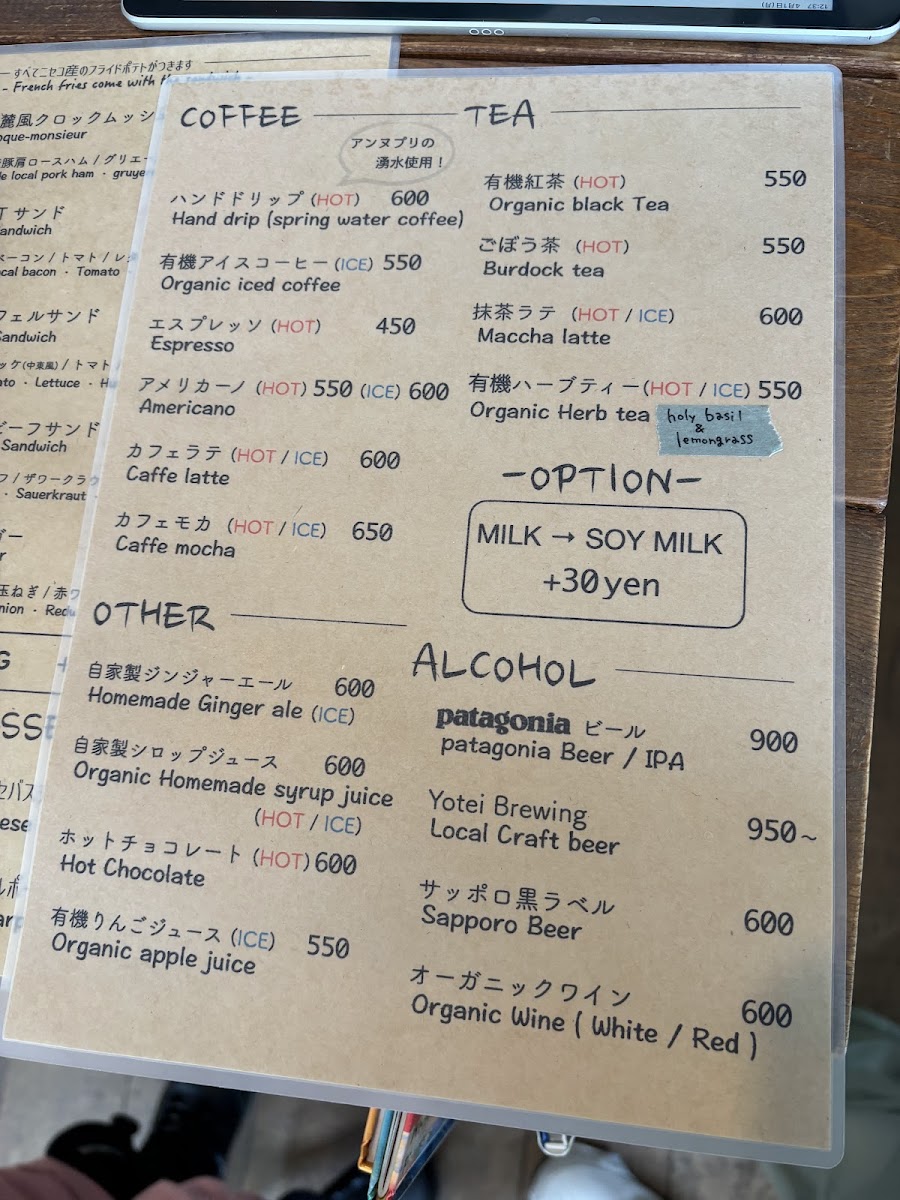 すべてニセコ産のフライドポテトがつきます
- French fries come with
麓風クロックムッシ
que-monsieur
豚肩ロースハム / グリエ
local pork ham ・ gruye
サンド
andwich
ベーコン / トマト / レ
cal bacon ・ Tomato
フェルサンド
Sandwich
ッケ(中東風) / トマト
to ・ Lettuce ・ H
ビーフサンド
Sandwich
フ / ザワークラウ
・ Sauerkraut ・
ガー
玉ねぎ / 赤ワ
nion ・ Red
COFFEE
アンヌプリの
湧水使用！
ハンドドリップ (HOT) 600
Hand drip (spring water coffee)
有機アイスコーヒー (ICE) 550
Organic iced coffee
エスプレッソ (HOT) 450
Espresso
アメリカーノ (HOT) 550 (ICE) 600
Americano
カフェラテ (HOT / ICE) 600
Caffe latte
カフェモカ (HOT / ICE) 650
Caffe mocha
OTHER
自家製ジンジャーエール 600
Homemade Ginger ale (ICE)
自家製シロップジュース 600
Organic Homemade syrup juice
(HOT / ICE)
ホットチョコレート (HOT) 600
Hot Chocolate
有機りんごジュース (ICE) 550
Organic apple juice
TEA
有機紅茶 (HOT) 550
Organic black Tea
ごぼう茶 (HOT) 550
Burdock tea
抹茶ラテ (HOT / ICE) 600
Maccha latte
有機ハーブティー(HOT / ICE) 550
Organic Herb tea
holy basil
&
lemongrass
-OPTION-
MILK → SOY MILK
+30yen
ALCOHOL
patagonia ビール 900
patagonia Beer / IPA
Yotei Brewing
Local Craft beer 950~
サッポロ黒ラベル
Sapporo Beer 600
オーガニックワイン
Organic Wine ( White / Red ) 600